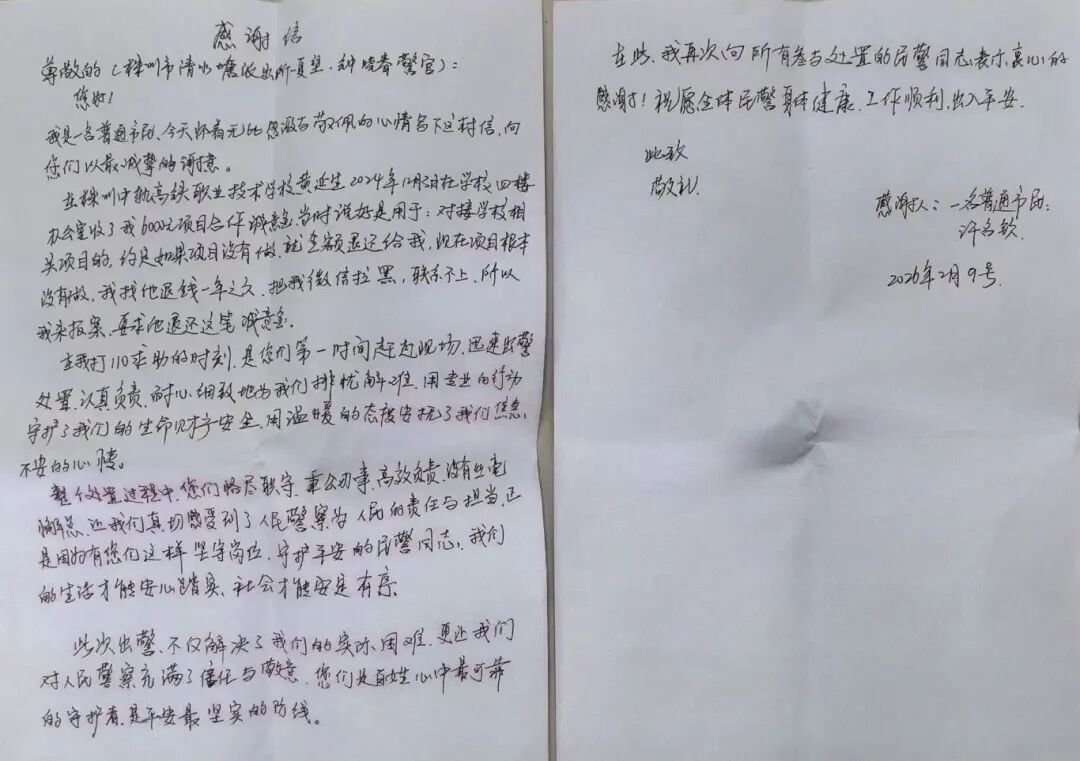 感谢信
尊敬的(株洲市清水塘派出所夏坚、钟晓春警官):
您好!
我是一名普通市民,今天怀着无比感激与敬佩的心情写下这封信,向
您们以最诚挚的谢意。
在株洲中轨高铁职业技术学校黄延生2024年12月3日在学校四楼
办公室收了我6000元项目合作诚意金,当时说好是用于:对接学校相
关项目的,约定如果项目没有做,就全额退还给我,现在项目根本
没有做,我找他退钱一年之久,把我微信拉黑,联系不上,所以
我来报案,要求他退还这笔诚意金.
在我打110求助的时刻,是您们第一时间赶赴现场,迅速出警
处置,认真负责,耐心细致地为我们排忧解难,用专业的行动
守护了我们的生命财产安全,用温暖的态度安抚了我们焦急
不安的心情。
整个处置过程中,您们恪尽职守,秉公办事,高效负责,没有丝毫
懈怠,让我们真切感受到了人民警察为人民的责任与担当,正
是因为有您们这样坚守岗位,守护平安的民警同志,我们
的生活才能安心踏实,社会才能安定有序.
此次出警,不仅解决了我们的实际困难,更让我们
对人民警察充满了信任与敬意,您们是百姓心中最可靠
的守护者,是平安最坚实的防线。
在此,我再次向所有参与处置的民警同志表示衷心的
感谢!祝愿全体民警身体健康,工作顺利,出入平安.
此致
敬礼
感谢人:一名普通市民:
许名钦
2026年2月9号.